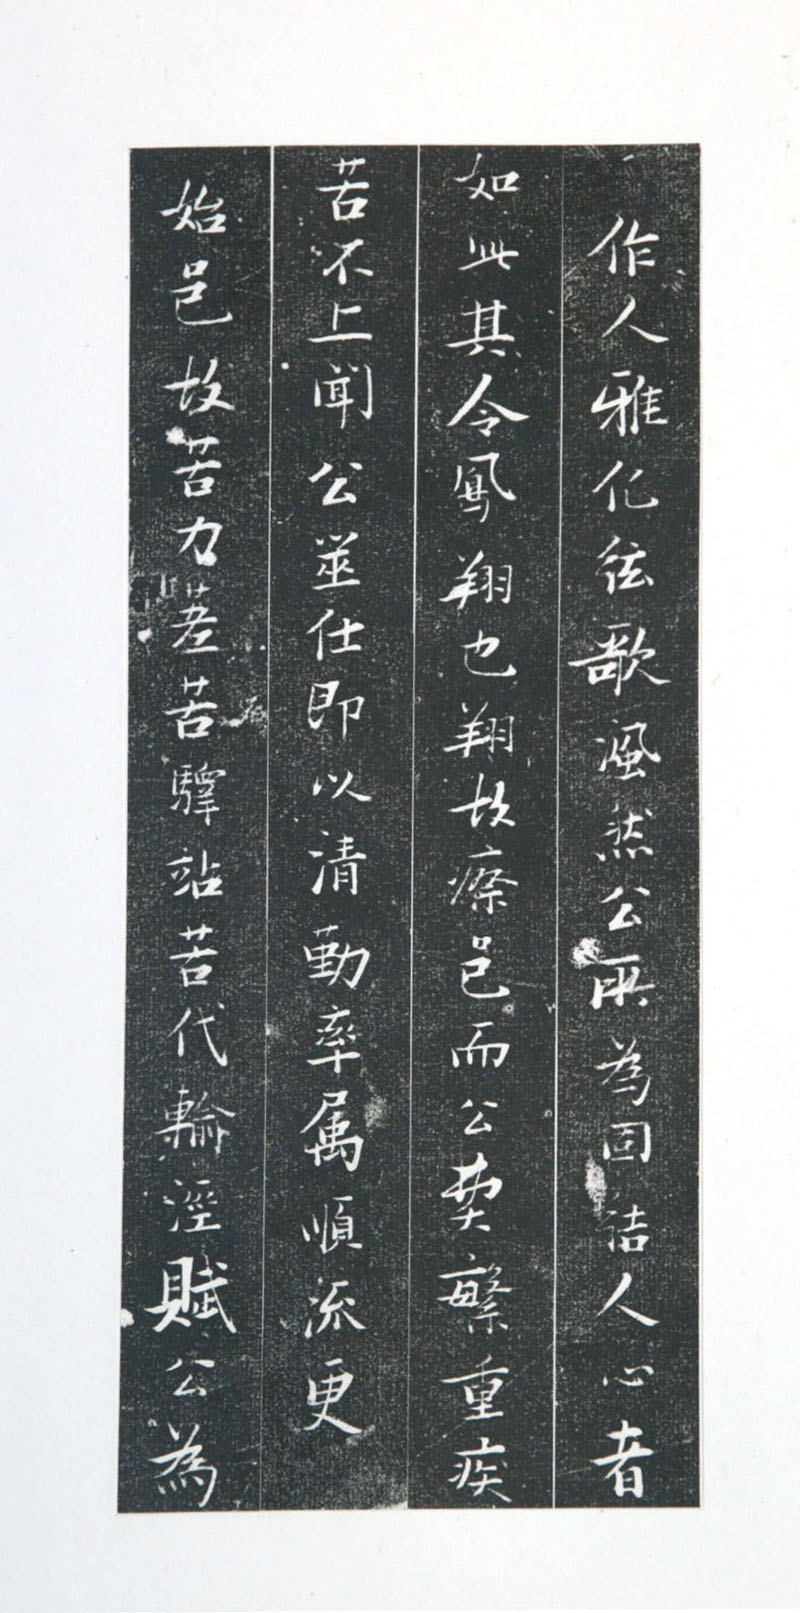 作人雅化弦歌渢然公所為固結人心者
如此其令鳳翔也翔故瘵邑而公費繁重疾
苦不上聞公筮仕即以清勤率属順流更
始邑故苦力差苦驛站苦代輸涇賦公為